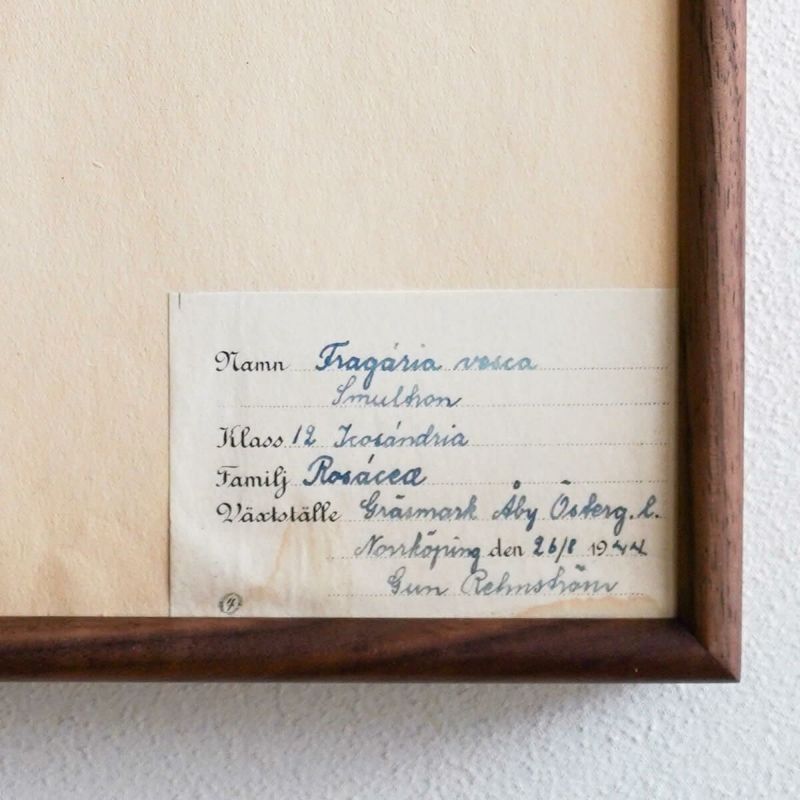 Namn Fragária vesca
Smultron
Klass 12 Icosándria
Familj Rosáceæ
Växtställe Gräsmark Åby Österg. l.
Norrköping den 26/8 1944
Gun Rehnström
4